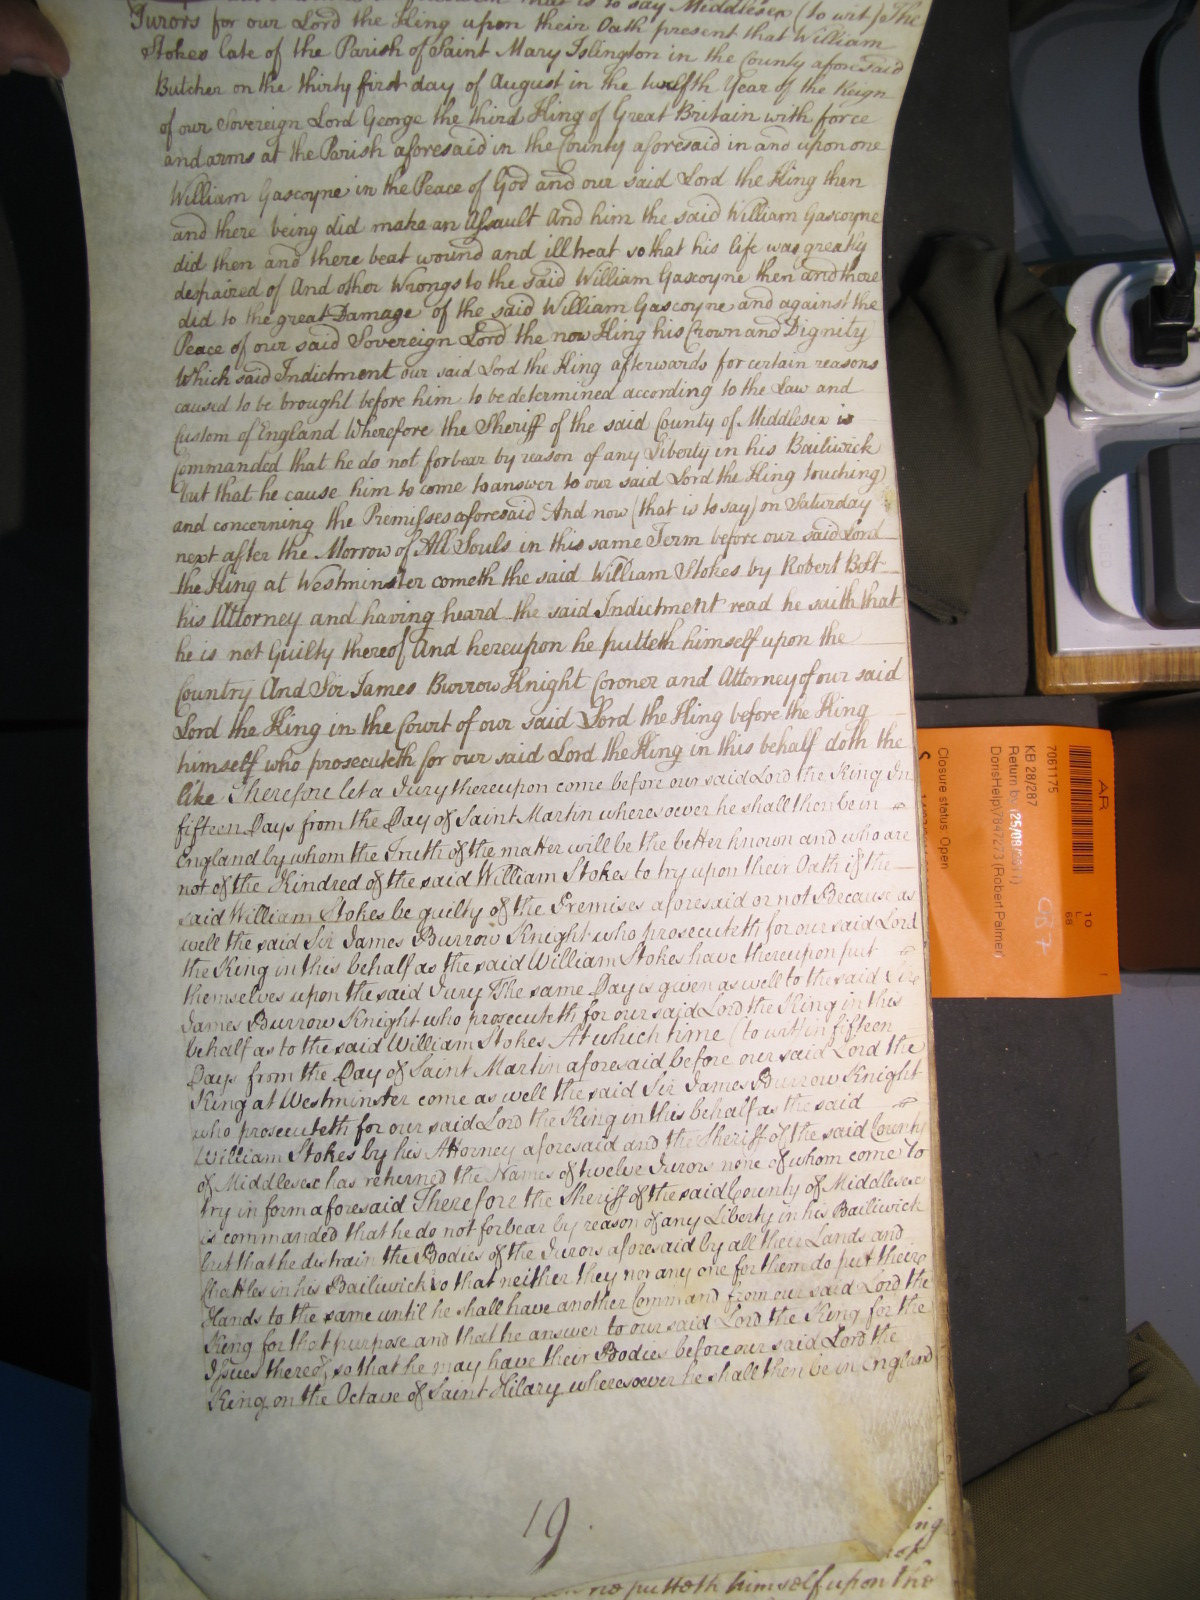 that is to say Middlesex (to wit) The
Jurors for our Lord the King upon their Oath present that William
Stokes late of the Parish of Saint Mary Islington in the County aforesaid
Butcher on the thirty first day of August in the twelfth Year of the Reign
of our Sovereign Lord George the third King of Great Britain with force
and arms at the Parish aforesaid in the County aforesaid in and upon one
William Gascoyne in the Peace of God and our said Lord the King then
and there being did make an Assault And him the said William Gascoyne
did then and there beat wound and ill treat so that his life was greatly
despaired of And other Wrongs to the said William Gascoyne then and there
did to the great Damage of the said William Gascoyne and against the
Peace of our said Sovereign Lord the now King his Crown and Dignity
Which said Indictment our said Lord the King afterwards for certain reasons
caused to be brought before him to be determined according to the Law and
Custom of England Wherefore the Sheriff of the said County of Middlesex is
Commanded that he do not forbear by reason of any Liberty in his Bailiwick
but that he cause him to come to answer to our said Lord the King touching
and concerning the Premisses aforesaid And now (that is to say) on Saturday
next after the Morrow of All Souls in this same Term before our said Lord
the King at Westminster cometh the said William Stokes by Robert Bolt
his Attorney and having heard the said Indictment read he saith that
he is not Guilty thereof And hereupon he putteth himself upon the
Country And Sir James Burrow Knight Coroner and Attorney of our said
Lord the King in the Court of our said Lord the King before the King
himself who prosecuteth for our said Lord the King in this behalf doth the
like Therefore let a Jury thereupon come before our said Lord the King In
fifteen Days from the Day of Saint Martin wheresoever he shall then be in
England by whom the Truth of the matter will be the better known and who are
not of the Kindred of the said William Stokes to try upon their Oath if the
said William Stokes be guilty of the Premises aforesaid or not Because as
well the said Sir James Burrow Knight who prosecuteth for our said Lord
the King in this behalf as the said William Stokes have thereupon put
themselves upon the said Jury The same Day is given as well to the said Sir
James Burrow Knight who prosecuteth for our said Lord the King in this
behalf as to the said William Stokes At which time (to wit) in fifteen
Days from the Day of Saint Martin aforesaid before our said Lord the
King at Westminster come as well the said Sir James Burrow Knight
who prosecuteth for our said Lord the King in this behalf as the said
William Stokes by his Attorney aforesaid and the Sheriff of the said County
of Middlesex has returned the Names of twelve Jurors none of whom come to
try in form aforesaid Therefore the Sheriff of the said County of Middlesex
is commanded that he do not forbear by reason of any Liberty in his Bailiwick
but that he distrain the Bodies of the Jurors aforesaid by all their Lands and
Chattles in his Bailiwick so that neither they nor any one for them do put their
Hands to the same until he shall have another Command from our said Lord the
King for that purpose and that he answer to our said Lord the King for the
Issues thereof, so that he may have their Bodies before our said Lord the
King on the Octave of Saint Hilary wheresoever he shall then be in England
19
ing
of
he putteth himself upon the
AR
7061175
KB 28/287
Return by (25/08/2011)
DorisHelp7847273 (Robert Palmer)
Closure status: Open
10
L
68